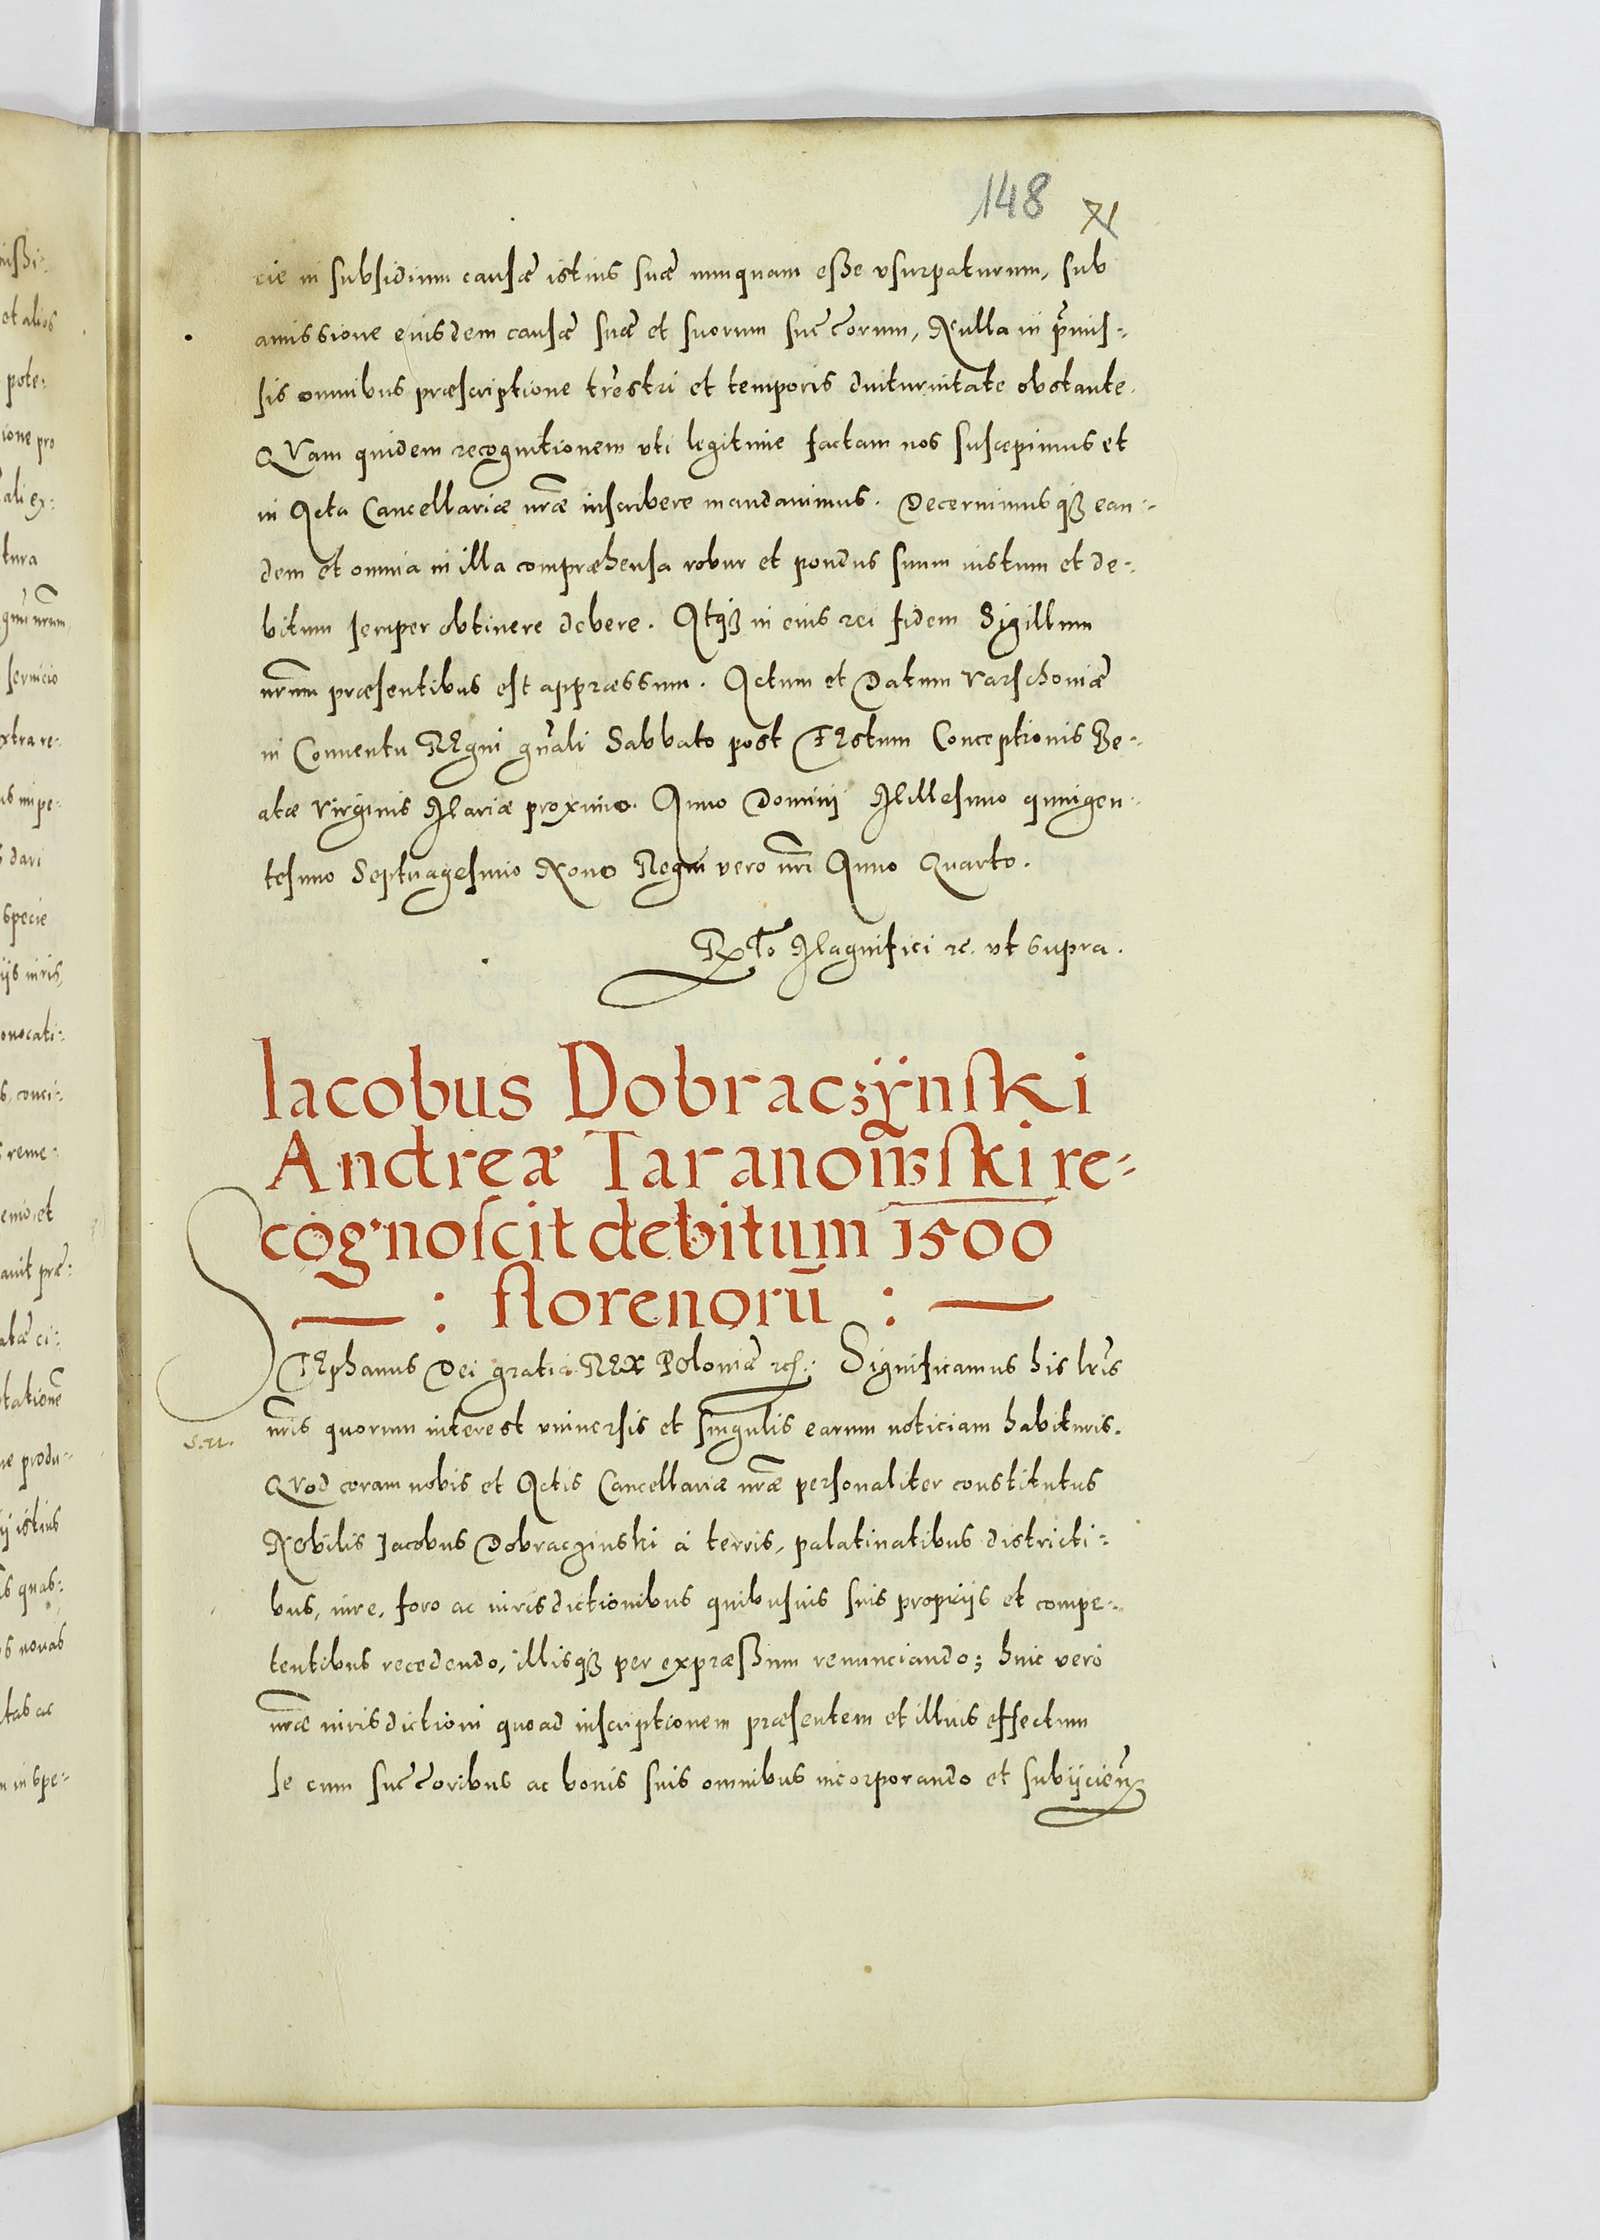 148
cie in subsidium causæ istius suæ nunquam esse vsurpaturum, sub
amissione eiusdem causæ suæ et suorum succorum, Nulla in pr̃mis-
sis omnibus præscriptione tr̃estri et temporis diuturnitate obstante.
QVam quidem recognitionem vti legitime factam nos suscepimus et
in Acta Cancellariæ nr̃æ inscribere mandauimus. Decernimusqꝫ ean-
dem et omnia in illa compræhensa robur et pondus suum iustum et de-
bitum semper obtinere debere. Atqꝫ in eius rei fidem Sigillum
nr̃um præsentibus est appræssum. Actum et Datum Varschoviæ
in Conuentu REgni gñali Sabbato post FEstum Conceptionis Be-
atæ Virginis Mariæ proximo. Anno Dominij Millesimo quingen-
tesimo Septuagesimo Nono Regni vero nr̃i Anno Quarto.
Rl͞o Magnifici ꝛc. vt supra.
Iacobus Dobraczÿnski
Andreæ Taranowski re-
cognoscit debitum 1500
: florenorū :
STEphanus Dei gratia REX POloniæ ꝛc̃: Significamus his lr̃is
nr̃is quorum interest vniuersis et singulis earum noticiam habituris.
QVod coram nobis et Actis Cancellariæ nr̃æ personaliter constitutus
NObilis Jacobus Dobraczinski à terris, palatinatibus districti-
bus, iure, foro ac iurisdictionibus quibusuis suis proprijs et compe-
tentibus recedendo, illisqꝫ per expræssum renunciando; huic vero
nr̃æ iurisdictioni quoad inscriptionem præsentem et illius effectum
se cum succoribus ac bonis suis omnibus incorporando et subijcieñ